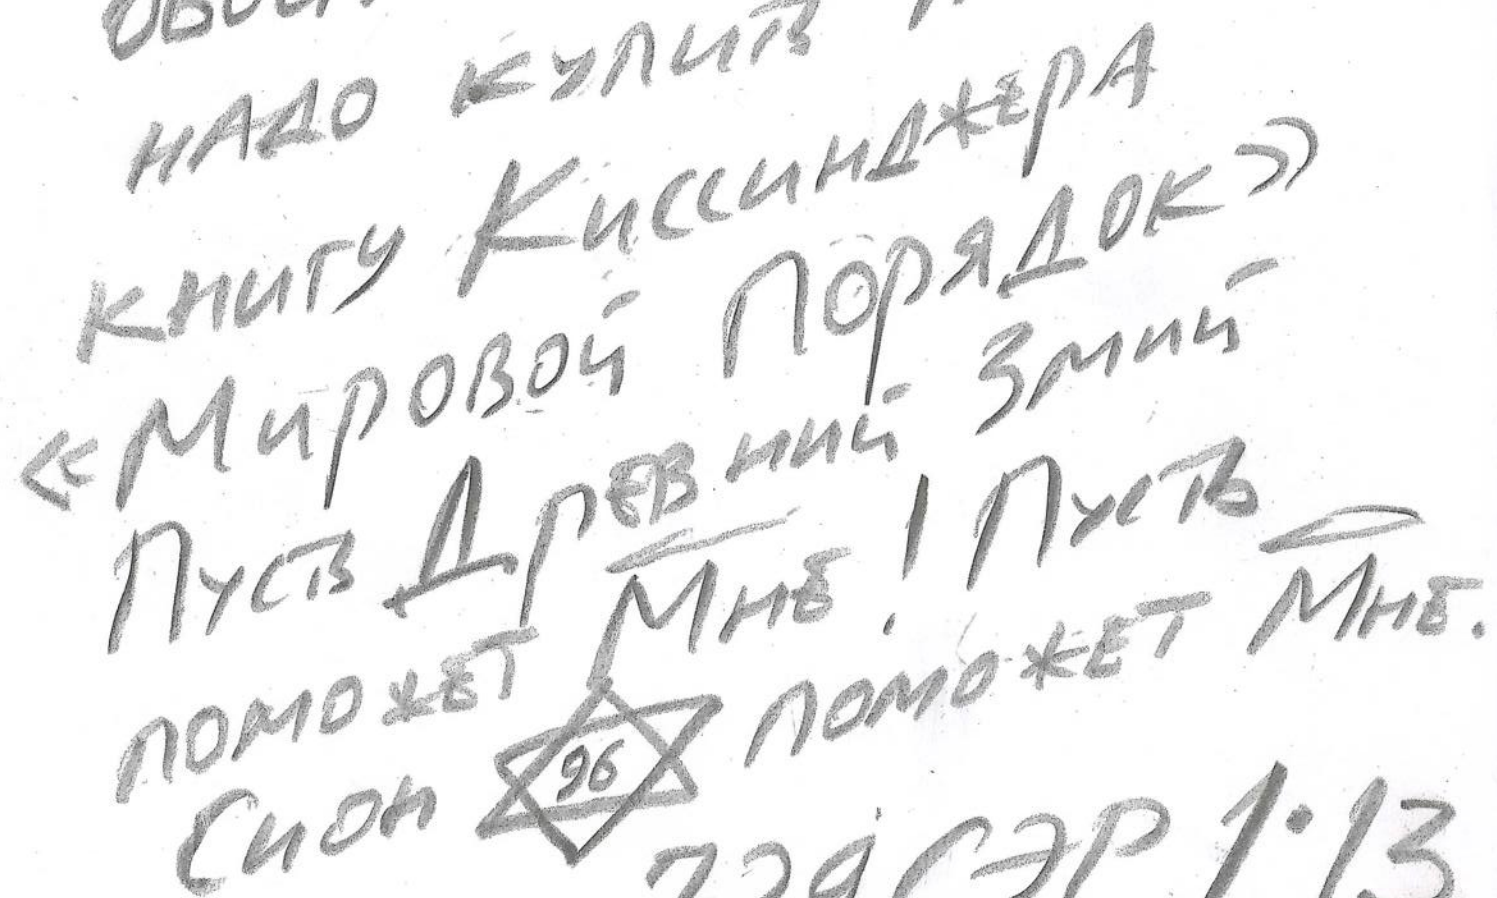 надо купить
книгу Киссинджера
«Мировой Порядок»
Пусть Древний Змий
поможет Мне! Пусть
Сион 96 поможет Мне.